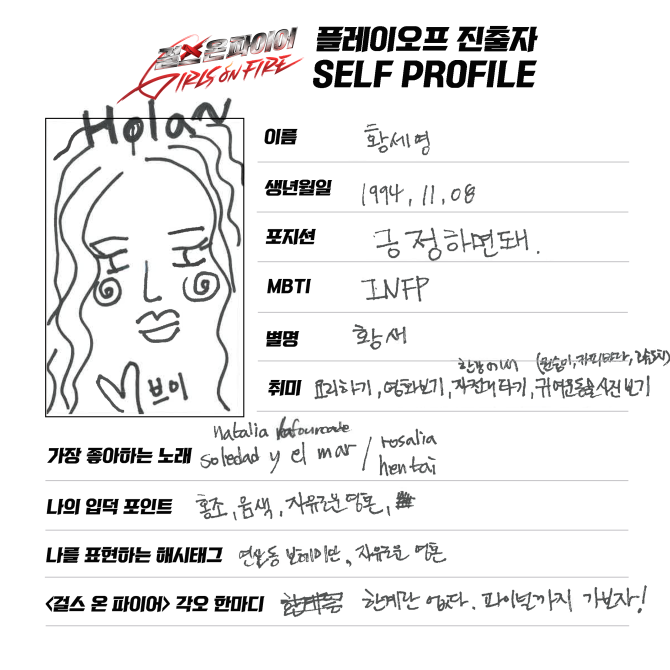 걸스 온 파이어
GIRLS ON FIRE
플레이오프 진출자
SELF PROFILE
Hola~
브이
이름 황세영
생년월일 1994, 11, 08
포지션 긍정하면돼.
MBTI INFP
별명 황서
한강에서 (원숭이, 카피바라,
취미 요리하기, 영화보기, 자전거타기, 귀여운동물사진보기
natalia lafourcade
가장 좋아하는 노래 soledad y el mar / rosalia
hentai
나의 입덕 포인트 홍조, 음색, 자유로운영혼,
나를 표현하는 해시태그 연남동 보헤미안, 자유로운 영혼
<걸스 온 파이어> 각오 한마디 한계란 없다. 파이널까지 가보자!